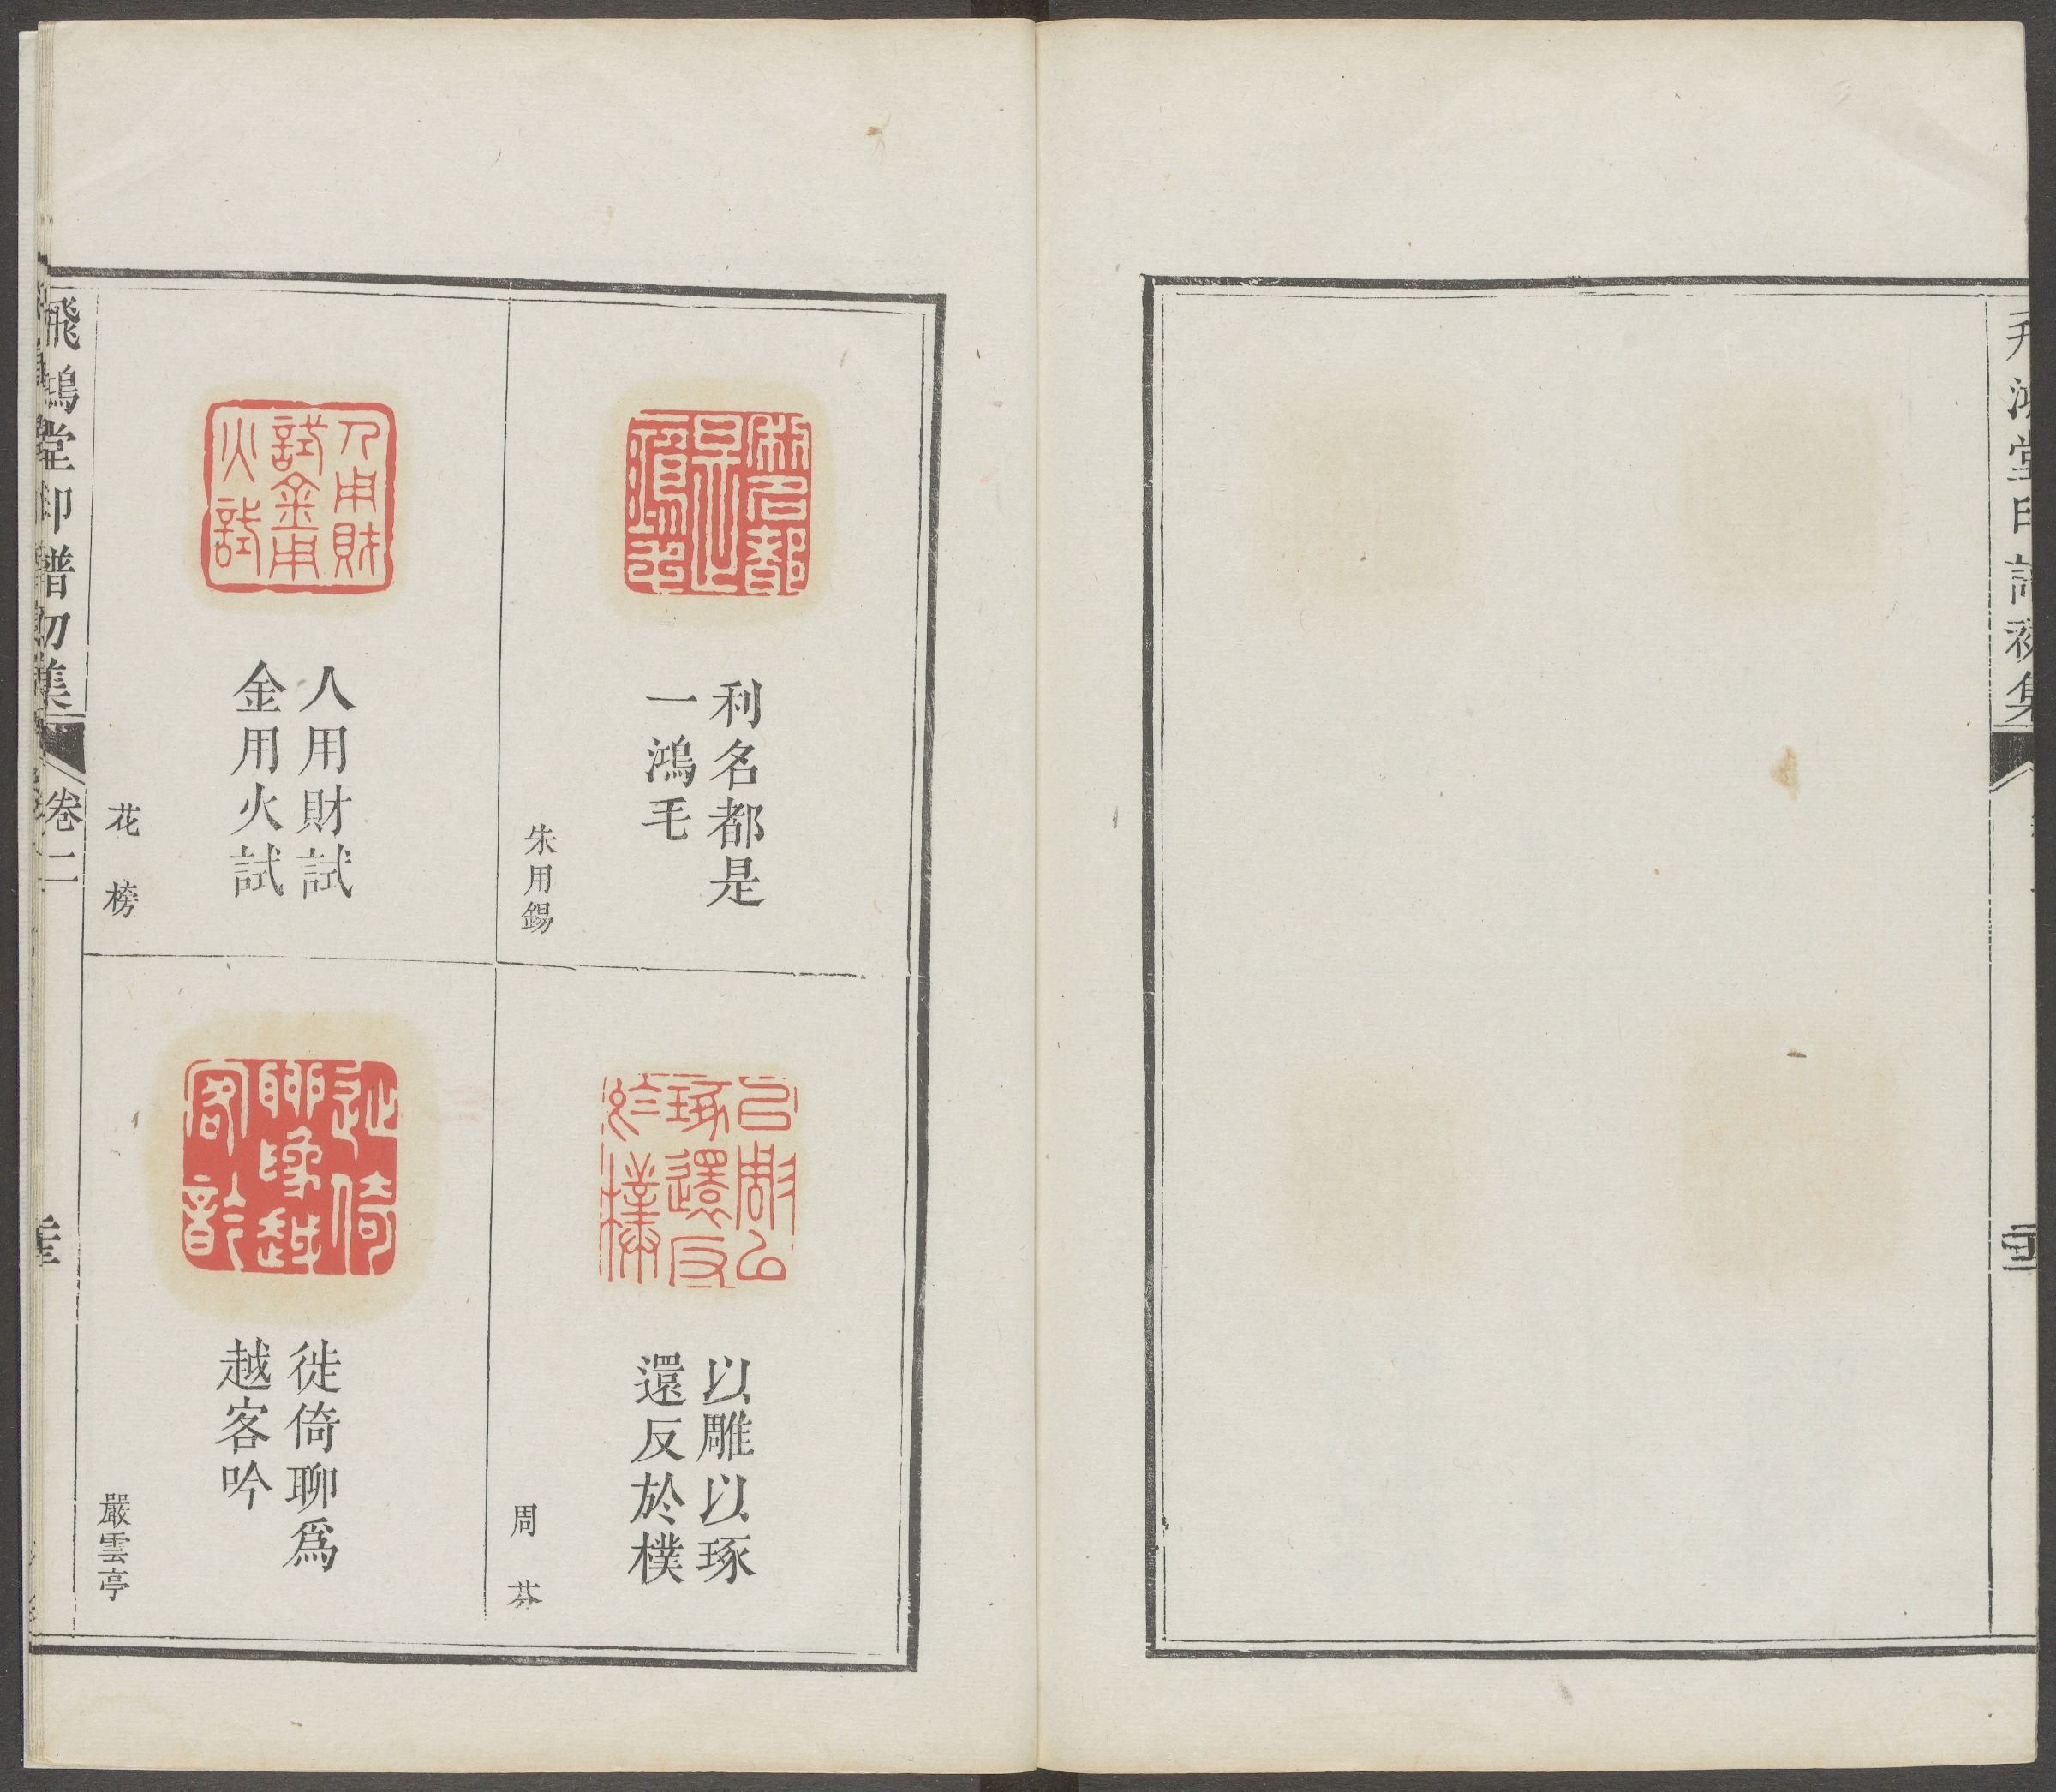 飛鴻堂印譜初集
利名都是
一鴻毛
朱用錫
以雕以琢
還反於樸
周芬
人用財試
金用火試
花榜
徙倚聊爲
越客吟
嚴雲亭
飛鴻堂印譜初集
卷二